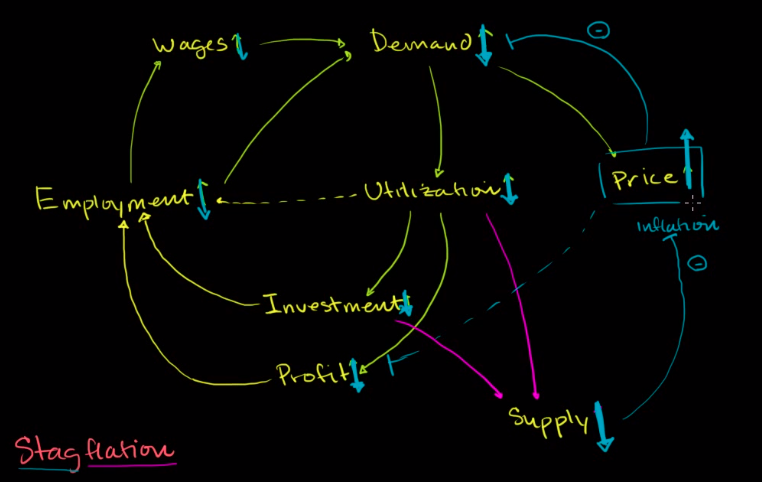 Wages
Demand
Price
Employment
Utilization
inflation
Investment
Profit
Supply
Stagflation